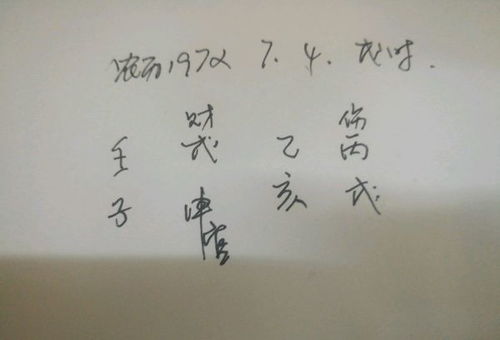 农历1972 7. 4. 戌时.
财 伤
壬 戊 乙 丙
子 申 亥 戌
官